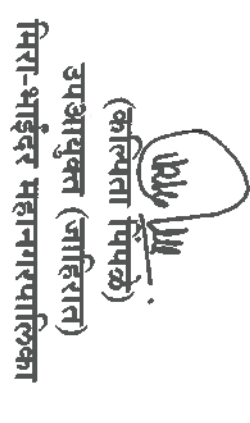 (कल्पिता पिंपळे)
उपआयुक्त (जाहिरात)
मिरा-भाईंदर महानगरपालिका